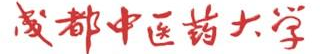 成都中医药大学